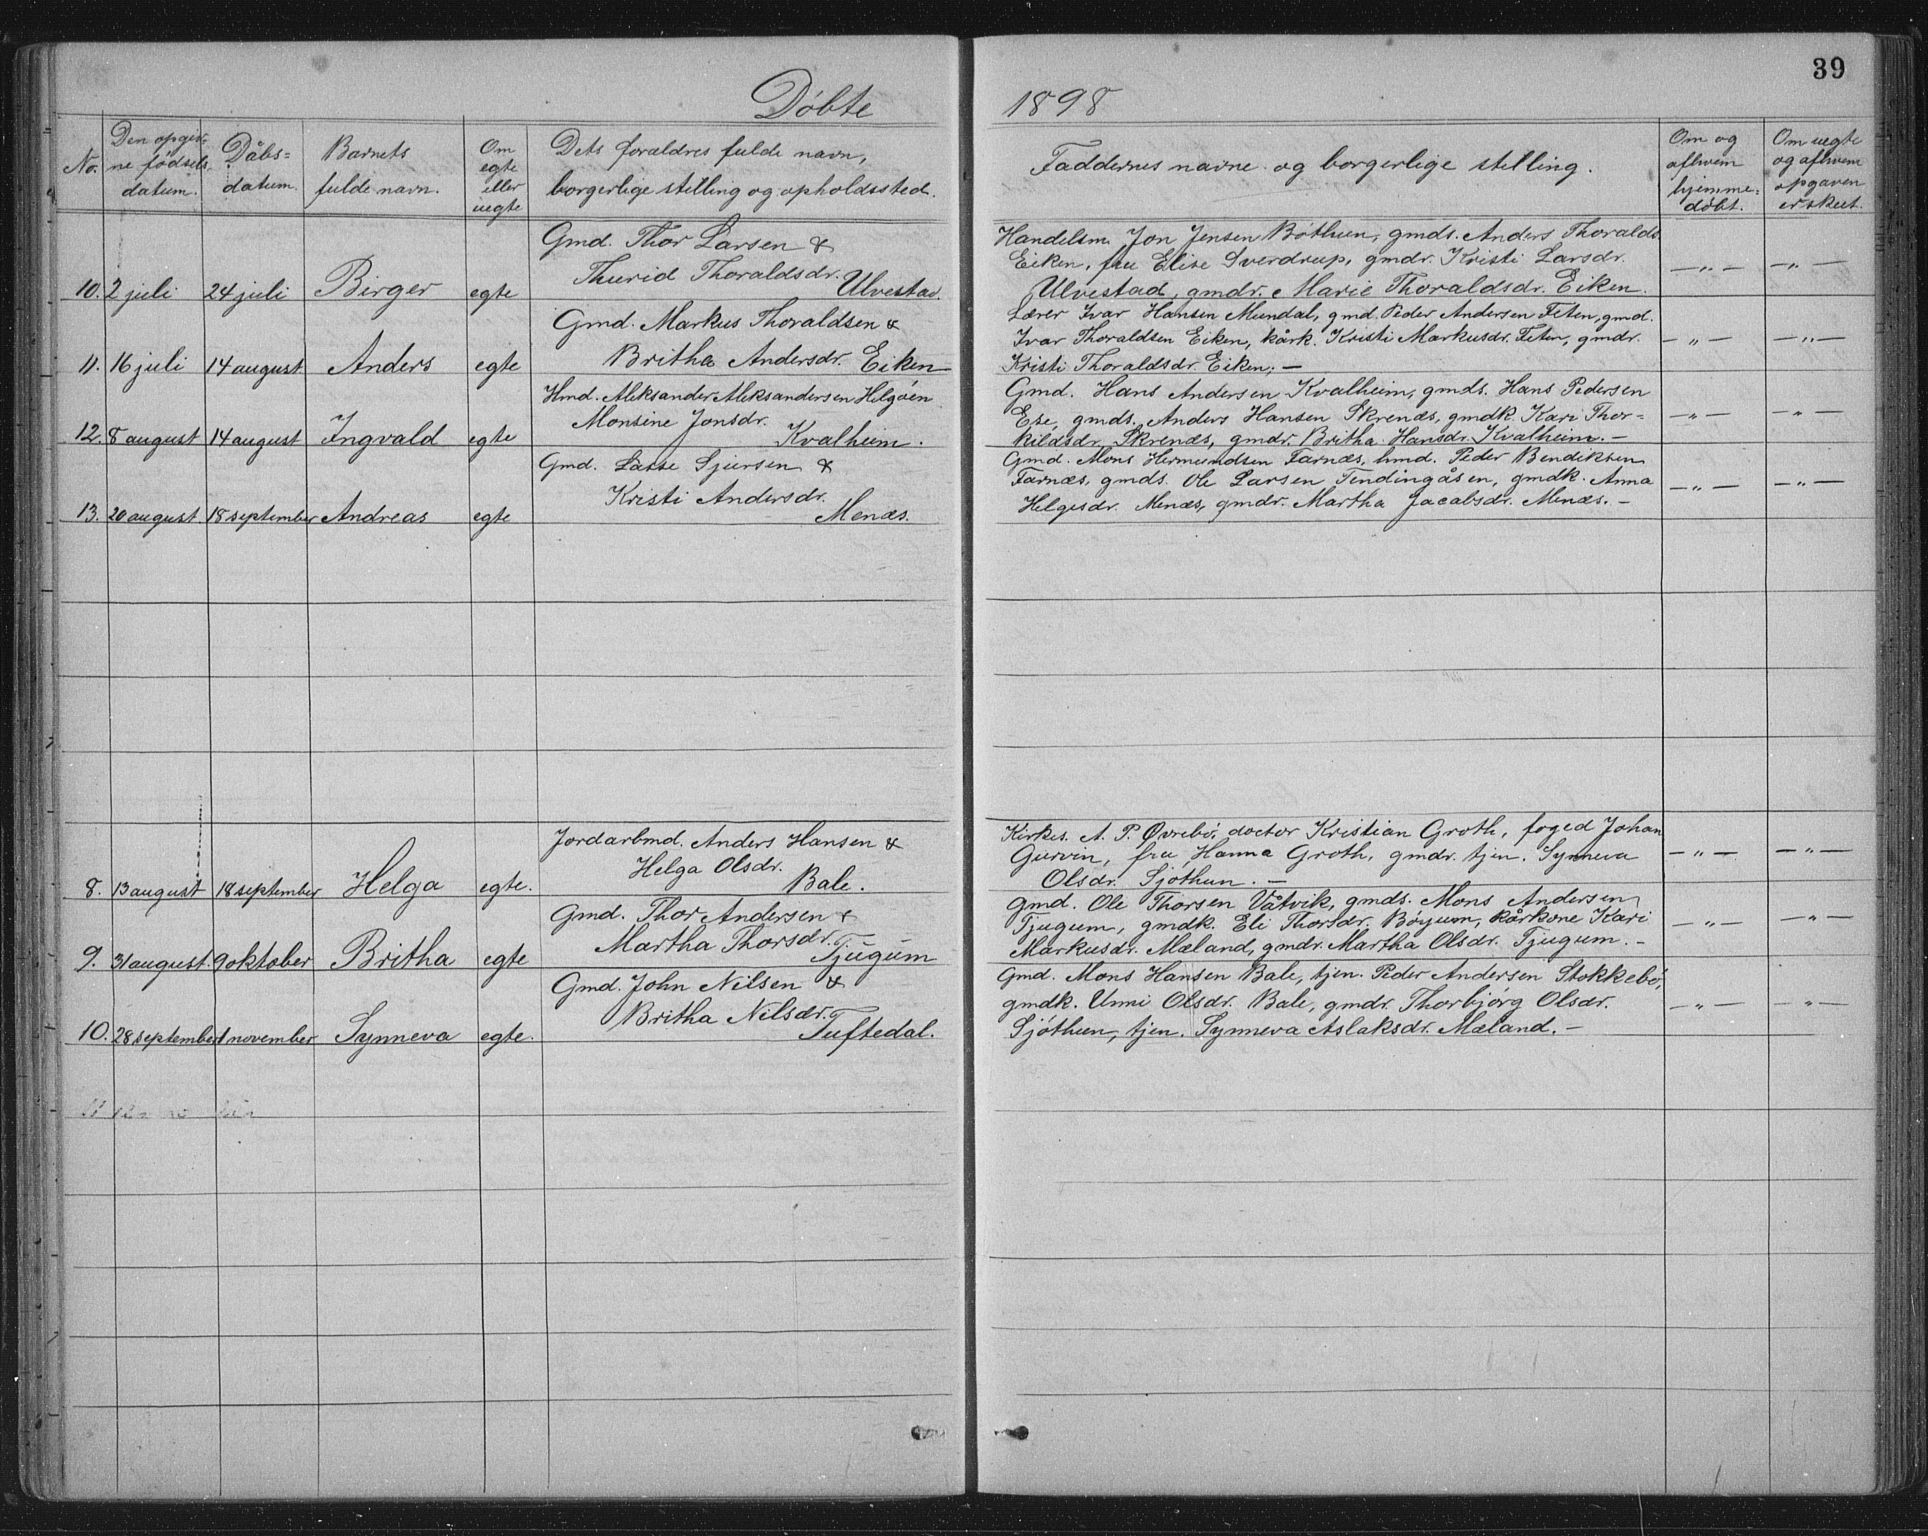 39
Döbte 1898
No.
Den opgiv-
ne födsels
datum.
Dåbs=
datum.
Barnets
fulde navn.
Om
egte
eller
uegte
Dets forældres fulde navn,
borgerlige stilling og opholdssted.
Faddernes navne og borgerlige stilling.
Om og
afhvem
hjemme=
döbt.
Om uegte
og afhvem
opgaven
er skeet.
Gmd. Thor Larsen &
Thurid Thoraldsdr. Ulvestad.
10. 2 juli 24 juli Birger egte
Handelsm. Jon Jensen Böthun, gmds. Anders Thoralds.
Eiken, fru Elise Sverdrup, gmdr. Kristi Larsdr.
Ulvestad, gmdr. Marie Thoraldsdr. Eiken.
— „ — — „ —
Gmd. Markus Thoraldsen &
Britha Andersdr. Eiken
11. 16 juli 14 august Anders egte
Lærer Ivar Hansen Mundal, gmd. Peder Andersen Feten, gmd.
Ivar Thoraldsen Eiken, kårk. Kristi Markusdr. Feten, gmdr.
Kristi Thoraldsdr. Eiken; —
— „ — — „ —
Hmd. Aleksander Aleksandersen Helgöen
Monsine Jonsdr.
Kvalheim.
12. 8 august 14 august Ingvald egte
Gmd. Hans Andersen Kvalheim, gmds. Hans Pedersen
Ese, gmds. Anders Hansen Skrenæs, gmdk. Kari Thor=
kildsdr. Skrenæs, gmdr. Britha Hansdr. Kvalheim. —
— „ — — „ —
Gmd. Lasse Sjursen &
Kristi Andersdr.
Menæs.
13. 20 august 18 september Andreas egte
Gmd. Mons Hermundsen Farnæs, hmd. Peder Bendiksen
Farnæs, gmds. Ole Larsen Tendingåsen, gmdk. Anna
Helgesdr. Menæs, gmdr. Martha Jacabsdr. Menæs. —
— „ — — „ —
Jordarbmd. Anders Hansen &
Helga Olsdr.
Bale.
8. 13 august 18 september Helga egte.
Kirkes. A. P. Øvrebö, doctor Kristian Groth, foged Johan
Gurvin, fru Hanna Groth, gmdr. tjen. Synneva
Olsdr. Sjöthun. —
— „ — — „ —
Gmd. Thor Andersen &
Martha Thorsdr. Tjugum
9. 31 august. 9 oktober Britha egte
Gmd. Ole Thorsen Våtvik, gmds. Mons Andersen
Tjugum, gmdk. Eli Thorsdr. Böyum, kårkone Kari
Markusdr. Mæland, gmdr. Martha Olsdr. Tjugum. —
— „ — — „ —
Gmd. John Nilsen &
Britha Nilsdr.
Tuftedal.
10. 28 september 1 november Synneva egte.
Gmd. Mons Hansen Bale, tjen. Peder Andersen Stokkebö,
gmdk. Unni Olsdr. Bale, gmdr. Thorbjörg Olsdr.
Sjöthun, tjen. Synneva Aslaksdr. Mæland. —
— „ — — „ —